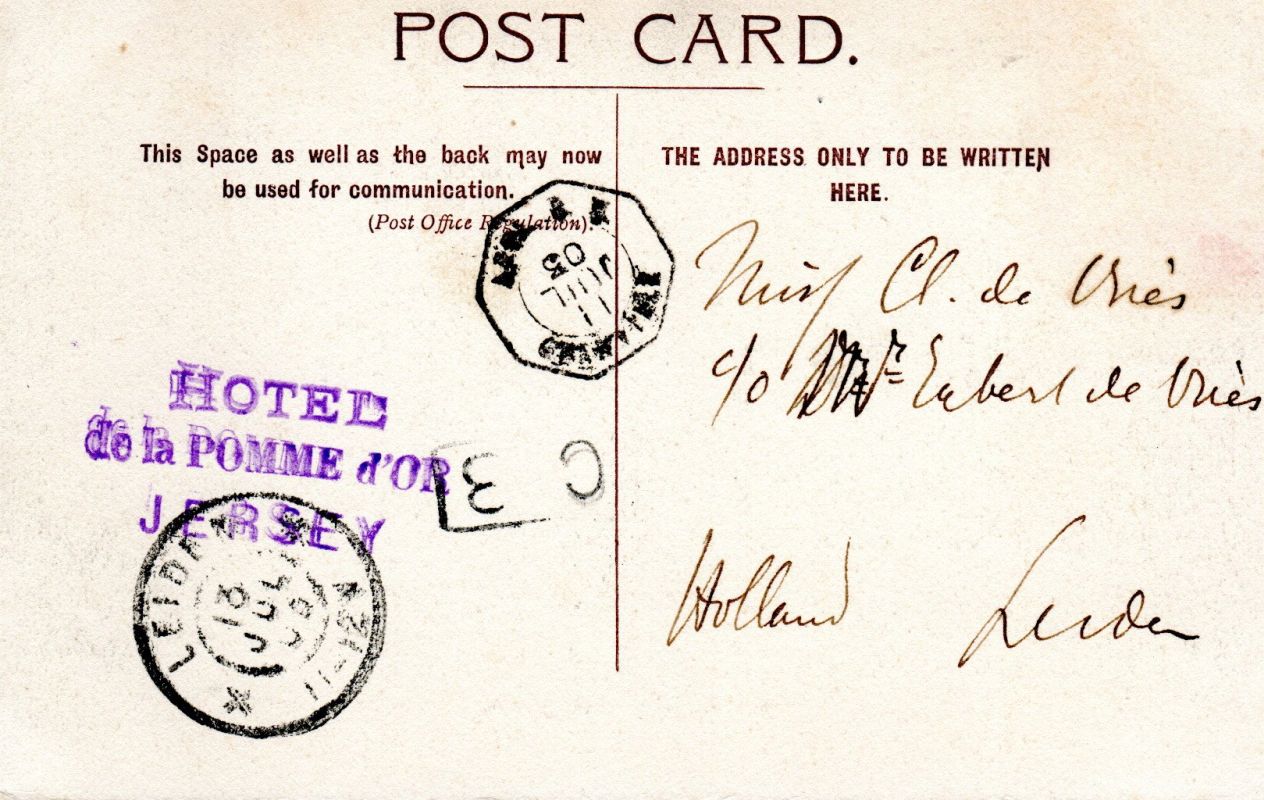 POST CARD.
This Space as well as the back may now
be used for communication.
(Post Office Regulation).
THE ADDRESS ONLY TO BE WRITTEN
HERE.
Miss Cl. de Vriès
c/o Mr Egbert de Vriès
Holland Leiden
11
JUIL
05
HOTEL
de la POMME d'OR
JERSEY
C 3
LEIDEN
13
JUL
11-12V